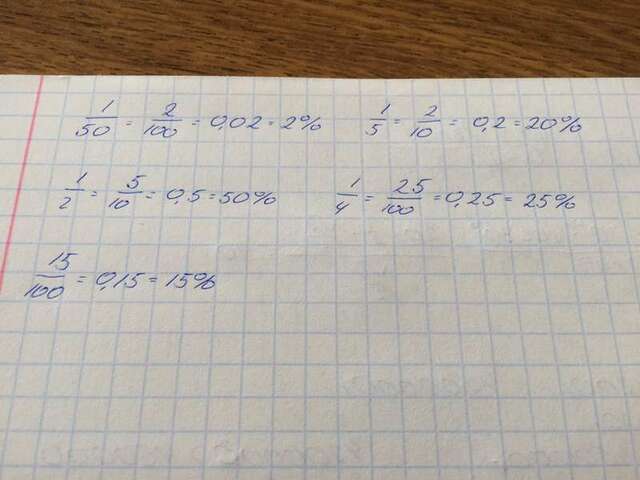 1/50 = 2/100 = 0,02 = 2% 1/5 = 2/10 = 0,2 = 20%
1/2 = 5/10 = 0,5 = 50% 1/4 = 25/100 = 0,25 = 25%
15/100 = 0,15 = 15%